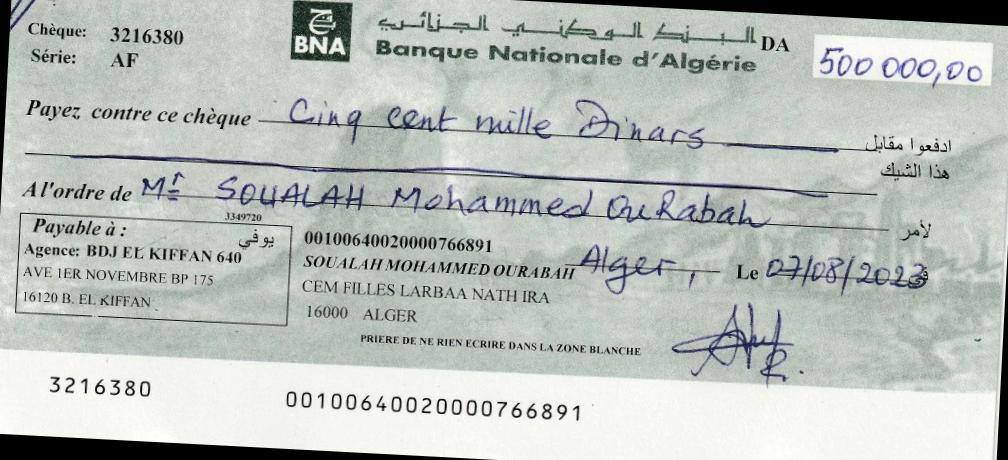 Chèque: 3216380
Série: AF
BNA
البنك الوطني الجزائري
Banque Nationale d'Algérie
DA 500 000,00
Payez contre ce chèque Cinq cent mille Dinars ادفعوا مقابل
هذا الشيك
A l'ordre de Mr SOUALAH Mohammed OuRabah لأمر
3349720
Payable à : يوفي
Agence: BDJ EL KIFFAN 640
AVE 1ER NOVEMBRE BP 175
16120 B. EL KIFFAN
00100640020000766891
SOUALAH MOHAMMED OURABAH
CEM FILLES LARBAA NATH IRA
16000 ALGER
Alger, Le 07/08/2023
PRIERE DE NE RIEN ECRIRE DANS LA ZONE BLANCHE
3216380
00100640020000766891